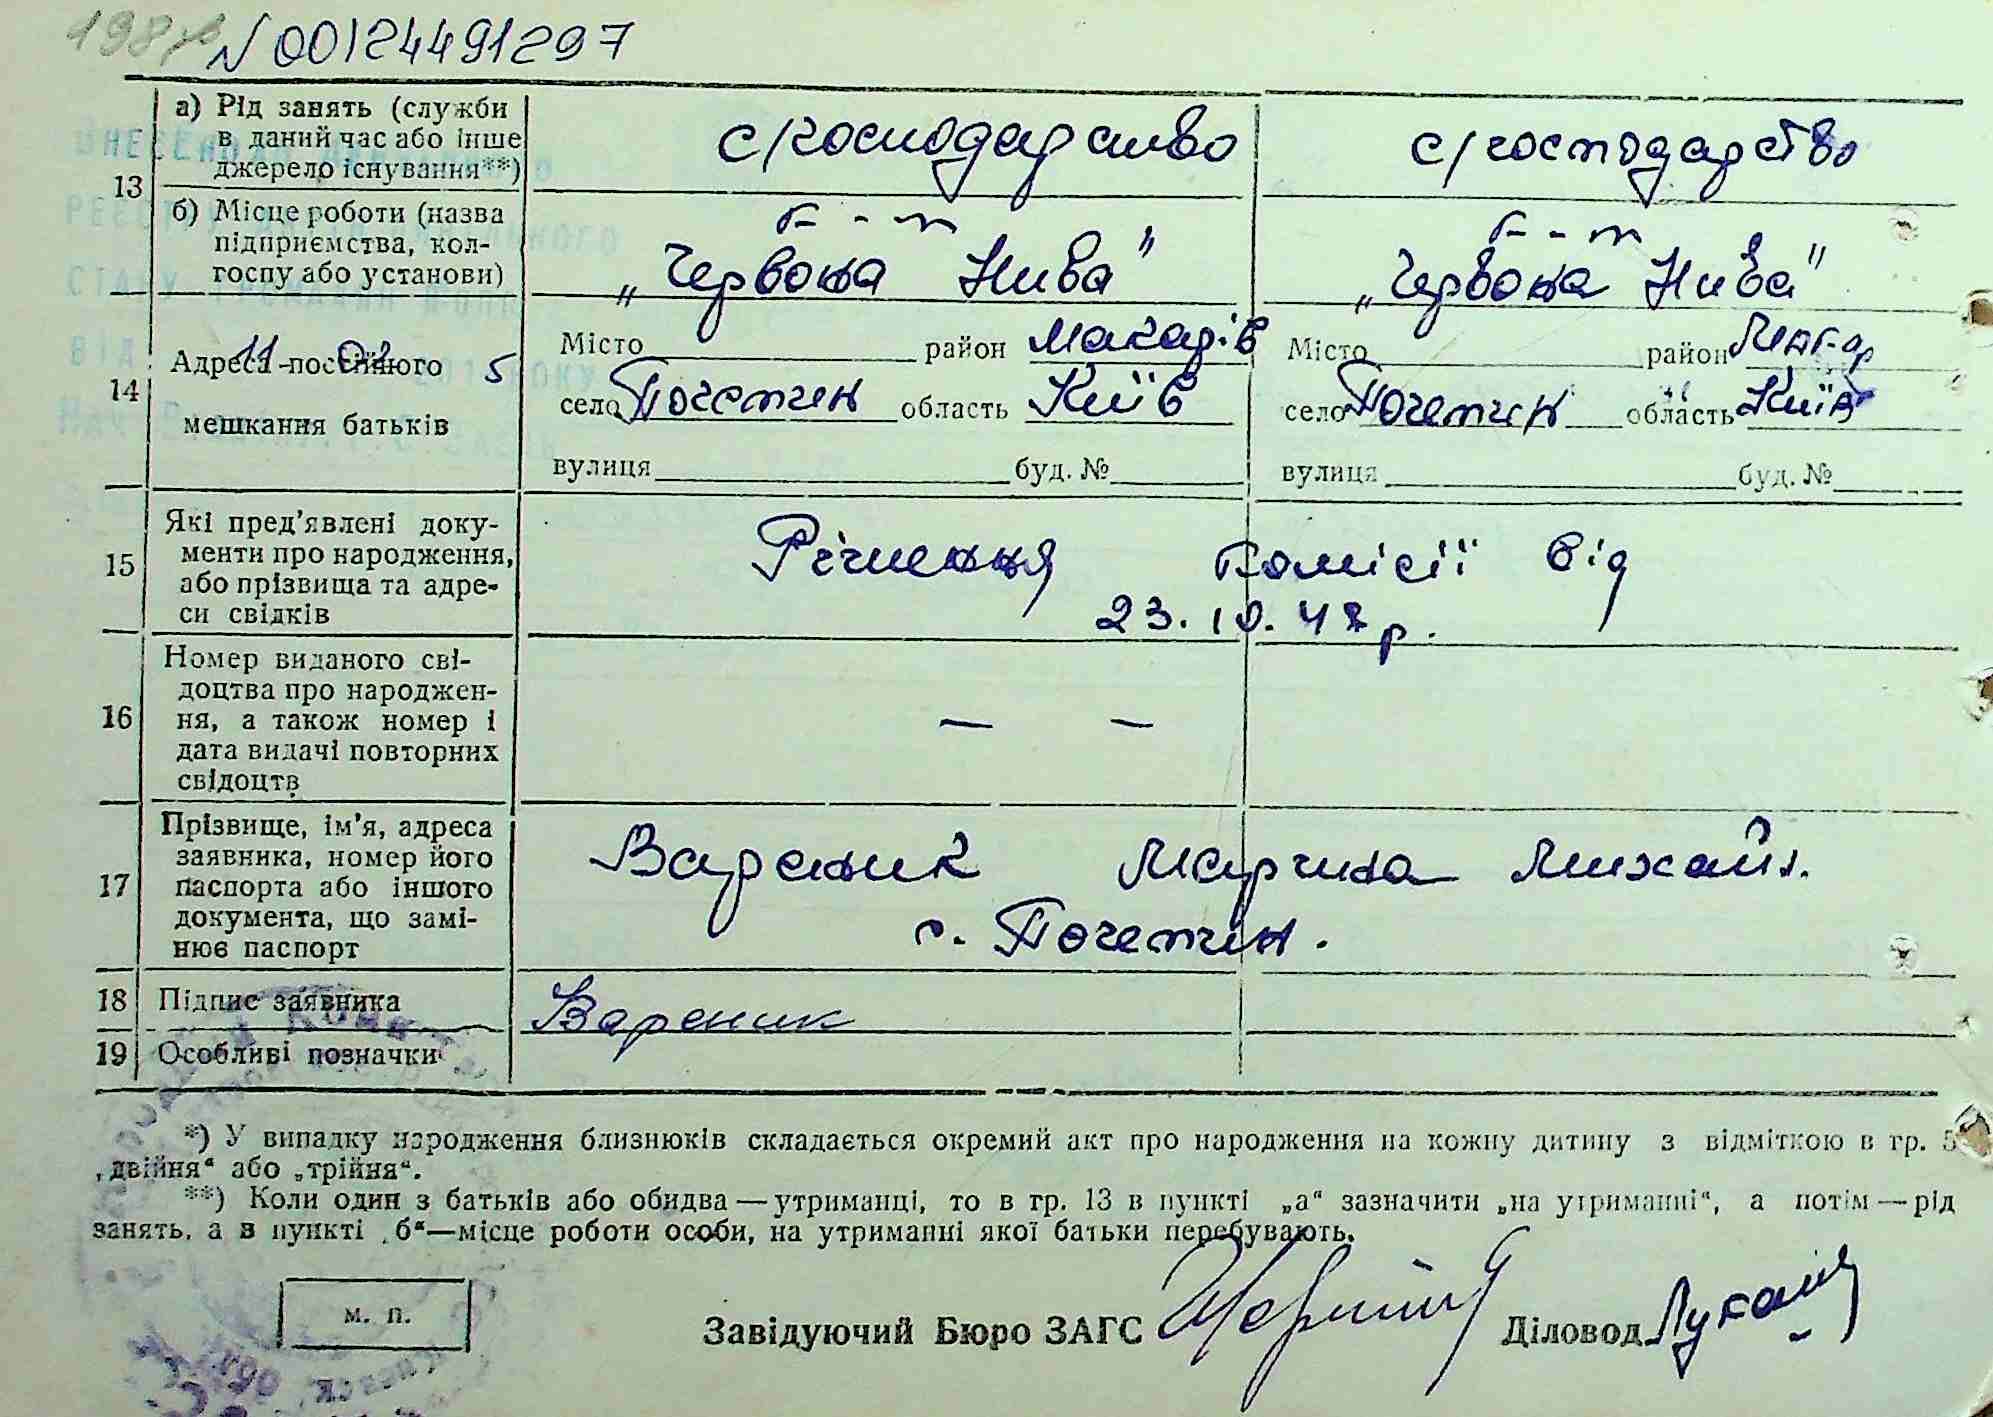 N 00124491297
13
а) Рід занять (служби в даний час або інше джерело існування**)
с/господарство
с/господарство
б) Місце роботи (назва підприємства, колгоспу або установи)
к-т „Червона Нива"
к-т „Червона Нива"
14
Адреса постійного мешкання батьків
Місто район Макарів
село Почепин область Київ
вулиця буд. №
Місто район Макар
село Почепин область Київ
вулиця буд. №
15
Які пред'явлені документи про народження, або прізвища та адреси свідків
Рішення комісії від
23.10.47 р.
16
Номер виданого свідоцтва про народження, а також номер і дата видачі повторних свідоцтв
— —
17
Прізвище, ім'я, адреса заявника, номер його паспорта або іншого документа, що замінює паспорт
Вареник Марина Михайл.
с. Почепин.
18
Підпис заявника
Вареник
19
Особливі позначки
*) У випадку народження близнюків складається окремий акт про народження на кожну дитину з відміткою в гр. 5
„двійня“ або „трійня“.
**) Коли один з батьків або обидва — утриманці, то в гр. 13 в пункті „а“ зазначити „на утриманні“, а потім — рід
занять, а в пункті „б“—місце роботи особи, на утриманні якої батьки перебувають.
м. п.
Завідуючий Бюро ЗАГС
Діловод